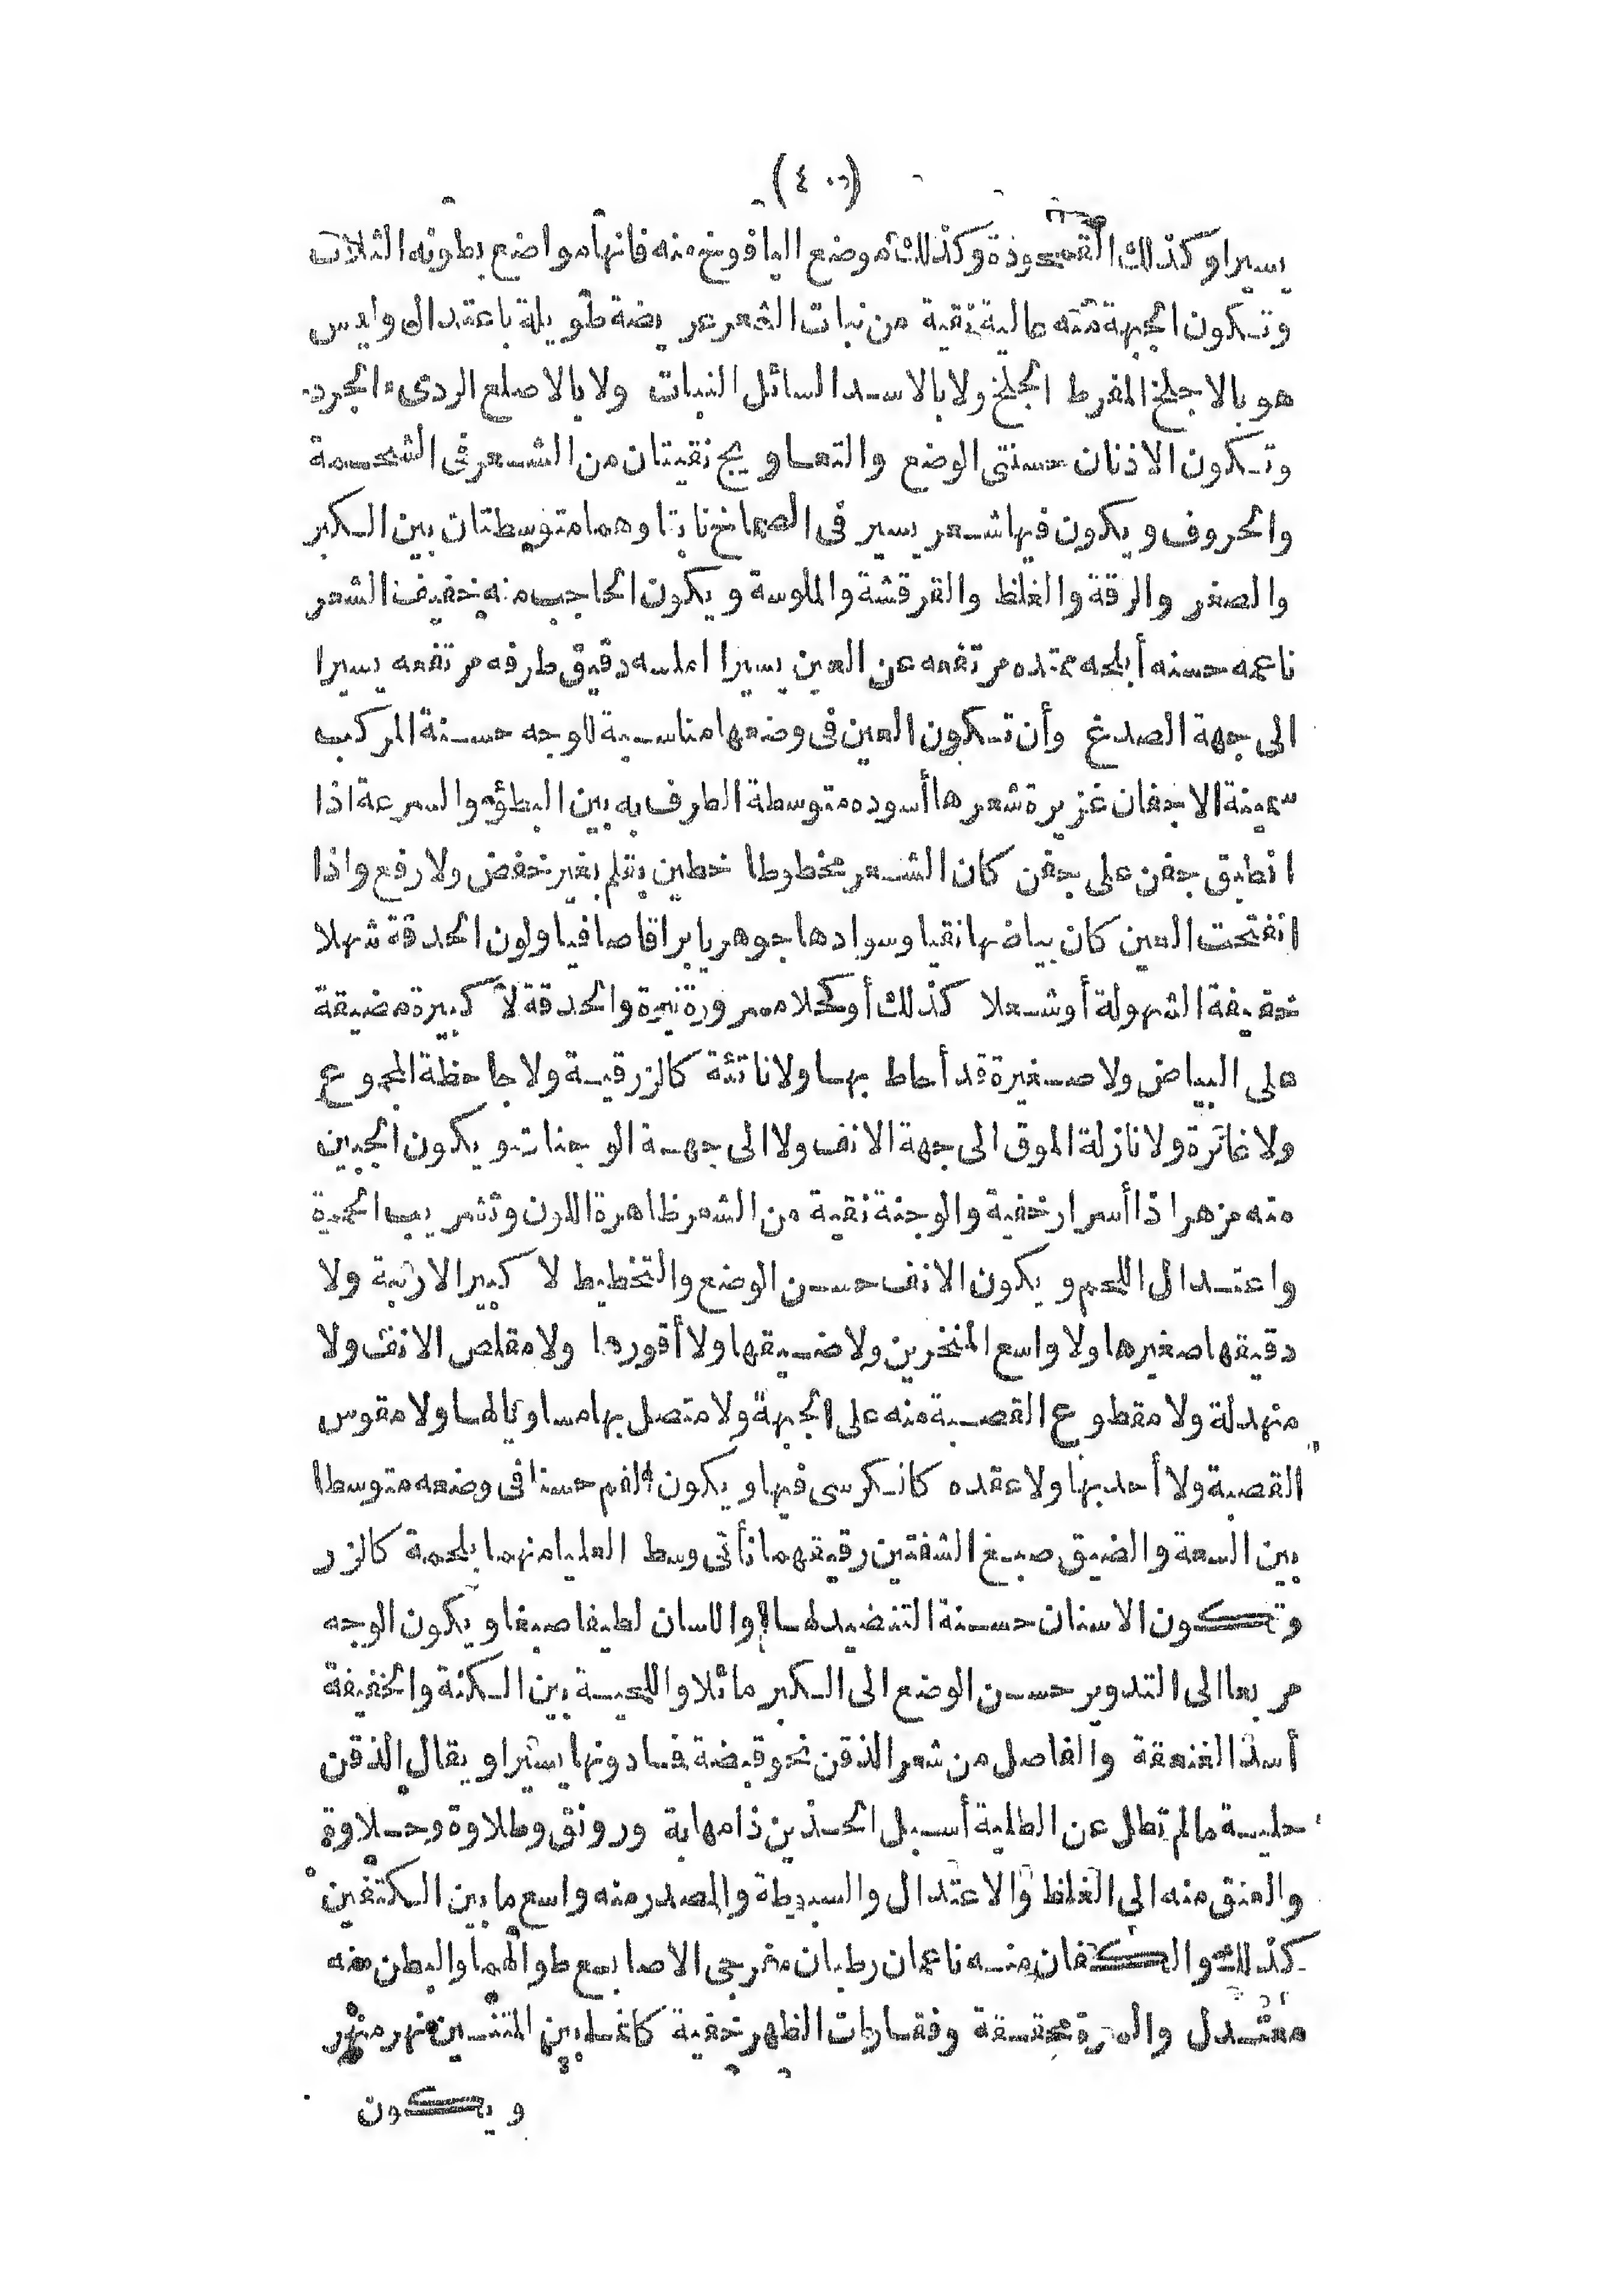 (٤٠)
يسيرا وكذلك القمحودة وكذلك موضع اليافوخ منه فانها مواضع بطونه الثلاث
وتكون الجبهة منه عالية نقية من نبات الشعر عريضة طويلة باعتدال وليس
هو بالاجلخ المفرط الجلخ ولا بالاسد السائل النبات ولا بالاصلع الردىء الجرد
وتكون الاذنان حسنتى الوضع والتعاويج نقيتان من الشعر فى الشحمة
والحروف ويكون فيها شعر يسير فى الصماخ نابتا وهما متوسطتان بين الكبر
والصغر والرقة والغلظ والقرقشة والملوسة ويكون الحاجب منه خفيف الشعر
ناعمه حسنه أبلجه ممتده مرتفعه عن العين يسيرا املسه دقيق طرفه مرتفعه يسيرا
الى جهة الصدغ وأن تكون العين فى وضعها مناسبة للوجه حسنة المركب
سمينة الاجفان غزيرة شعرها أسوده متوسطة الطرف به بين البطؤ والسرعة اذا
انطبق جفن على جفن كان الشعر مخطوطا خطين بقلم بغير خفض ولا رفع واذا
انفتحت العين كان بياضها نقيا وسوادها جوهريا براقا صافيا ولون الحدقة شهلا
خفيفة الشهولة أو شعلا كذلك أو كحلا مسرورة نيرة والحدقة لا كبيرة مضيقة
على البياض ولا صغيرة قد أحاط بها ولا ناتئة كالزرقية ولا جاحظة المجموع
ولا غائرة ولا نازلة الموق الى جهة الانف ولا الى جهة الوجنات ويكون الجبين
منه مزهرا ذا أسرار خفية والوجنة نقية من الشعر ظاهرة اللون وتشريب الحمرة
واعتدال اللحم ويكون الانف حسن الوضع والتخطيط لا كبير الارنبة ولا
دقيقها صغيرها ولا واسع المنخرين ولا ضيقها ولا أقورها ولا مقلص الانف ولا
منهدلة ولا مقطوع القصبة منه على الجبهة ولا متصل بها مساويا لها ولا مقوس
القصبة ولا أحدبها ولا عقده كالكرسى فيها ويكون الفم حسنا فى وضعه متوسطا
بين السعة والضيق صبغ الشفتين رقيقهما ناتى وسط العليا منهما بلحمة كالزر
وتكون الاسنان حسنة التنضيد لها واللسان لطيفا صبغا ويكون الوجه
مربعا الى التدوير حسن الوضع الى الكبر مائلا واللحية بين الكثة والخفيفة
أسد العنفقة والفاصل من شعر الذقن نحو قبضة فما دونها يسيرا ويقال الذقن
حلية ما لم تطل عن الطلية أسيل الخدين ذا مهابة ورونق وطلاوة وحلاوة
والعنق منه الى الغلظ والاعتدال والسبوطة والصدر منه واسع ما بين الكتفين
كذلك والكفان منه ناعمان رطبان منفرجى الاصابع طوالهما والبطن منه
معتدل والسرة محققة وفقارات الظهر خفية كاغلب بين المتنين
ويكون